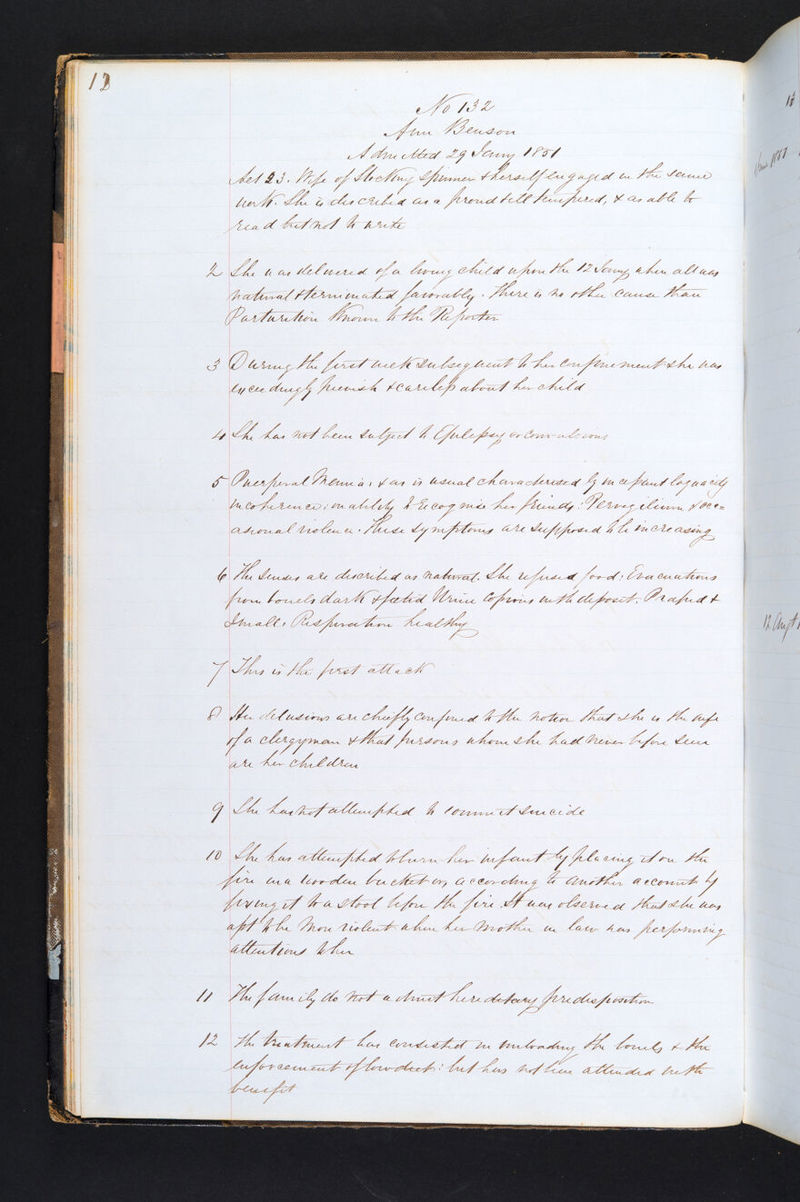 12
No 132
Ann Benson
Admitted 29 Jany 1851
Aet 23. Wife of Stocking Spinner & herself engaged in the same
work. She is described as a proud tempered, & as able to
read but not to write
2 She was delivered of a living child upon the 12 Jany, when all was
natural & terminated favorably. There is no other cause than
Parturition known to the Reporter
3 During the first week subsequent to her confinement she was
exceedingly peevish & careless about her child
4 She has not been subject to Epilepsy or Convulsions
5 Puerperal Mania, & as is usual characterised by incessant loquacity
incoherence: inability to recognise her friends: Pervigilium & occ=
asional violence. These symptoms are supposed to be increasing
6 The Senses are described as natural. She refused food: Evacuations
from bowels dark & foetid Urine copious with deposit. P rapid &
small: Respiration healthy
7 This is the first attack
8 Her delusions are chiefly confined to the notion that she is the wife
of a clergyman & that persons whom she had never before seen
are her children
9 She has not attempted to commit suicide
10 She has attempted to burn her infant by placing it on the
fire in a wooden bucket or, according to another account by
fixing it to a stool before the fire. It was observed that she was
apt to be more violent when her mother in law was performing
attentions to her
11 The family do not admit hereditary predisposition
12 The treatment has consisted in unloading the bowels & the
enforcement of low diet: but has not been attended with
benefit
13
12 Augt